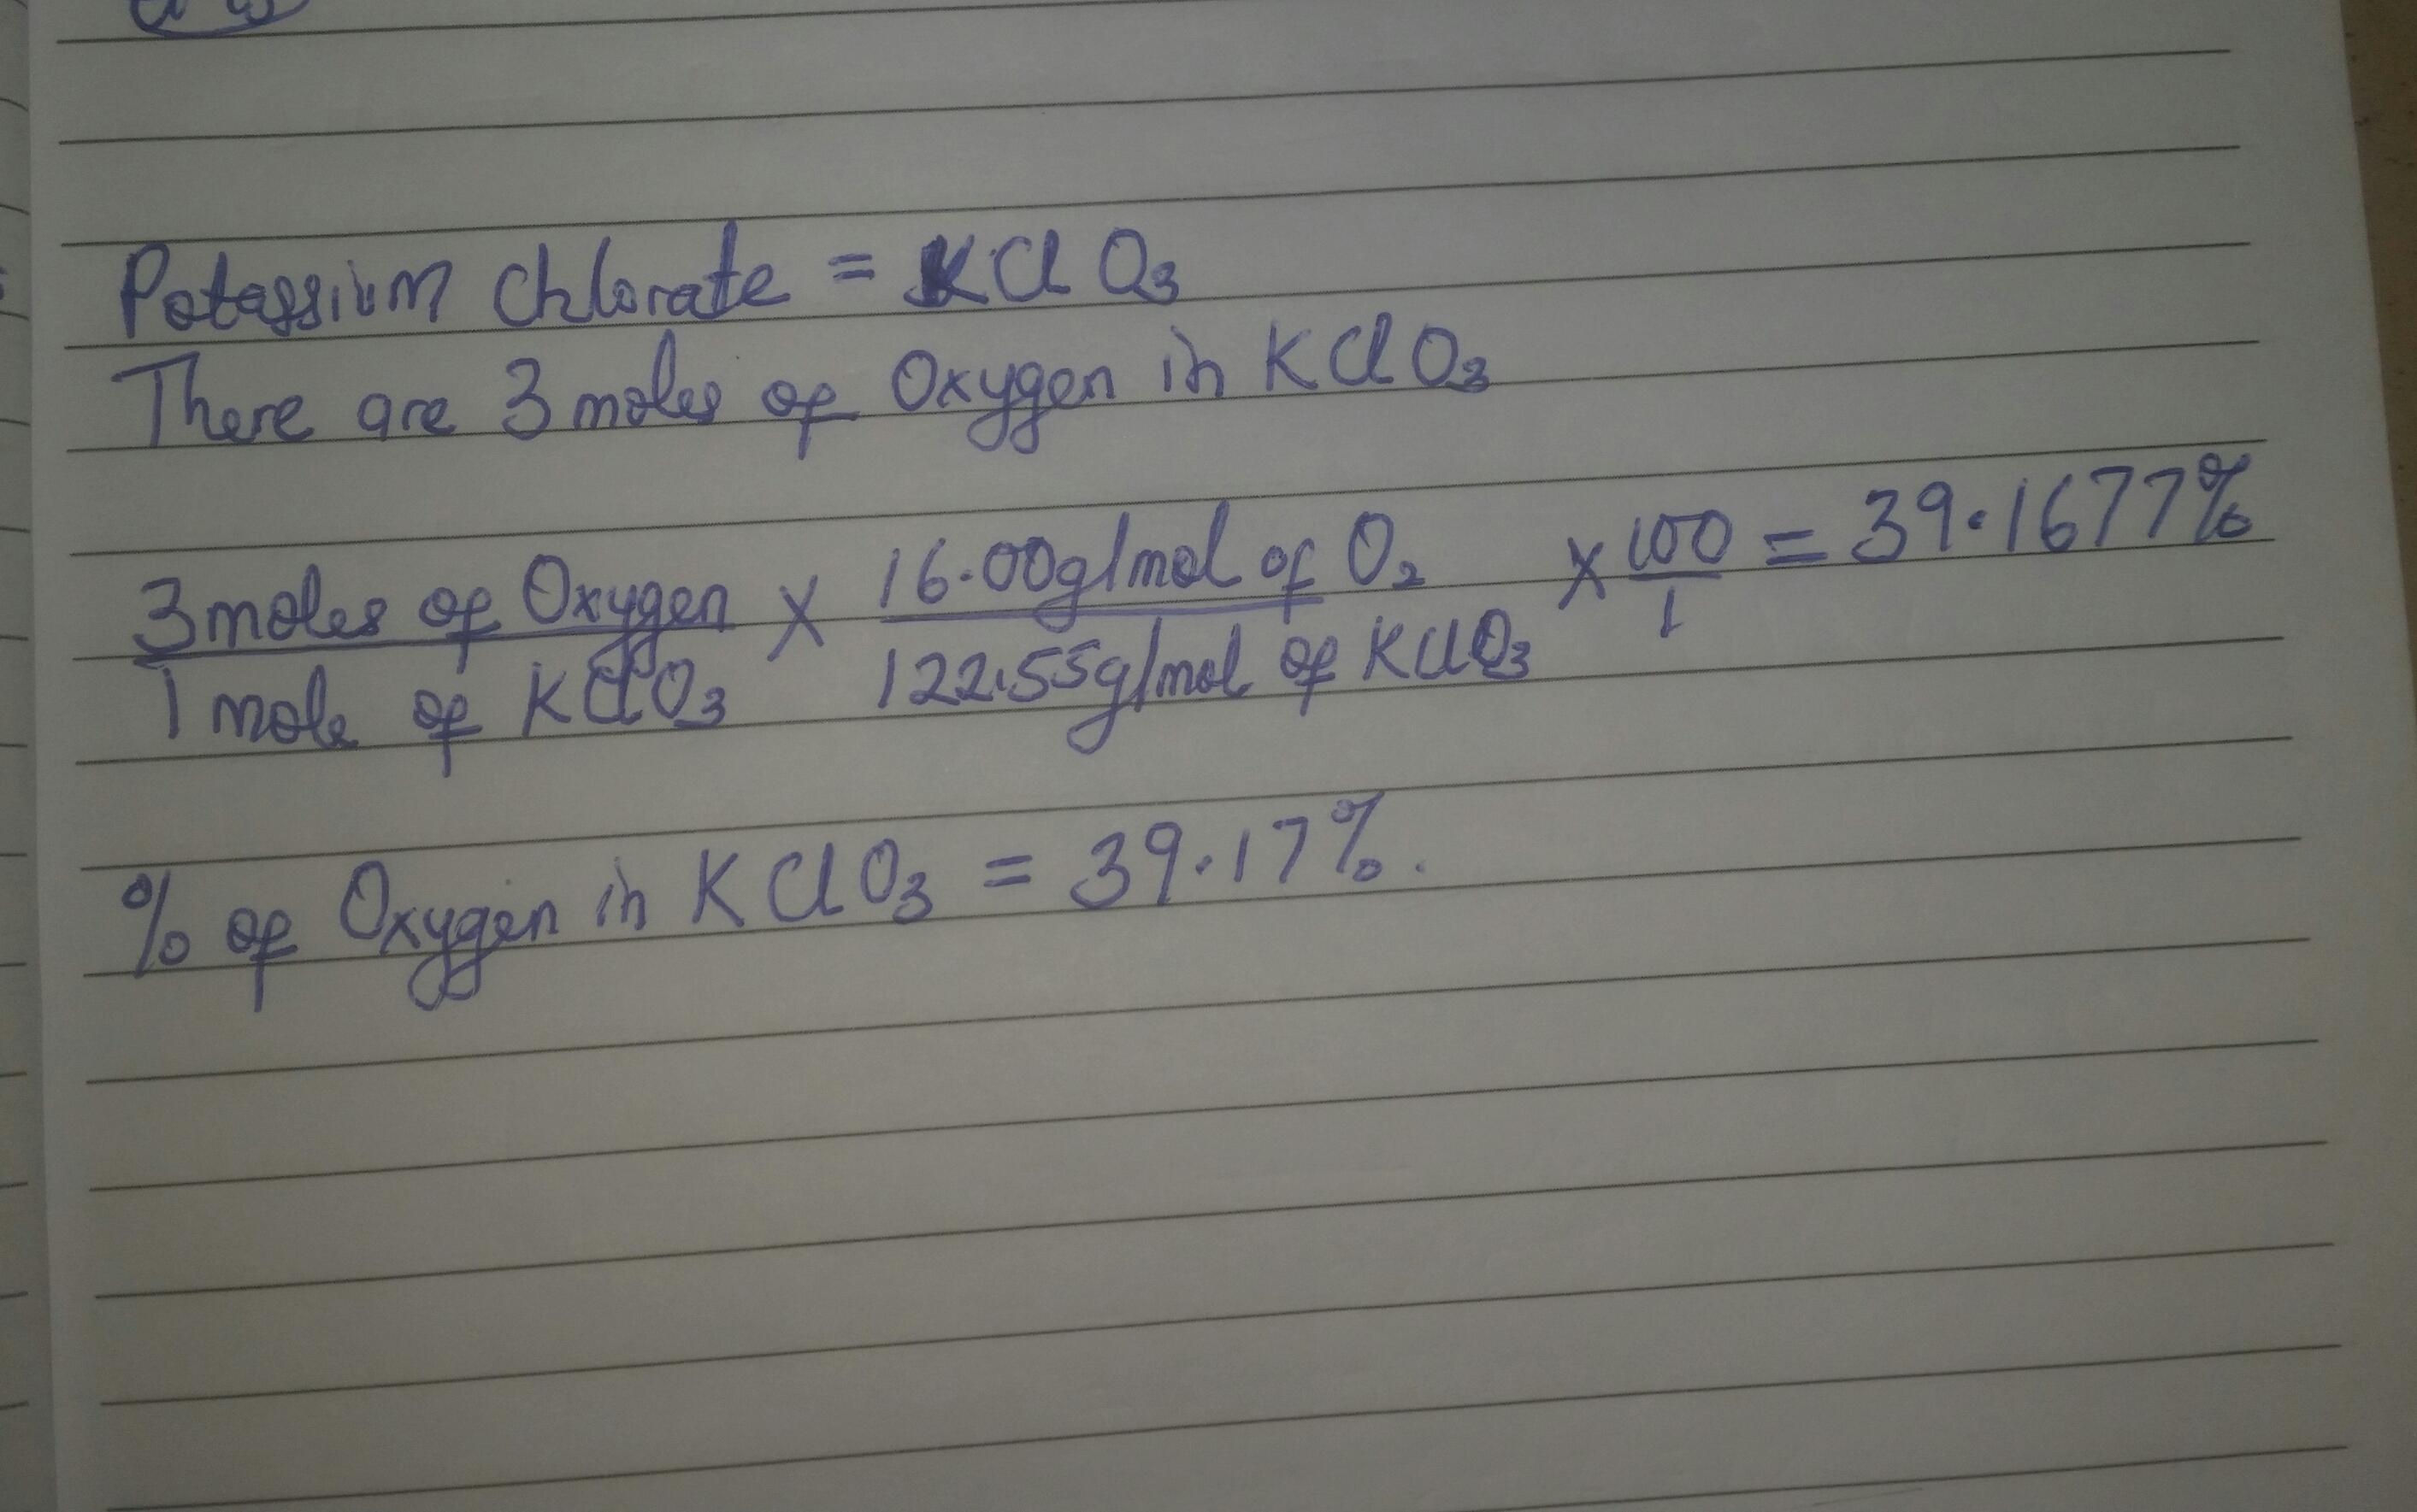 Potassium Chlorate = KClO₃
There are 3 moles of Oxygen in KClO₃
3 moles of Oxygen / 1 mole of KClO₃ × 16.00g/mol of O₂ / 122.55g/mol of KClO₃ × 100/1 = 39.1677%
% of Oxygen in KClO₃ = 39.17%.